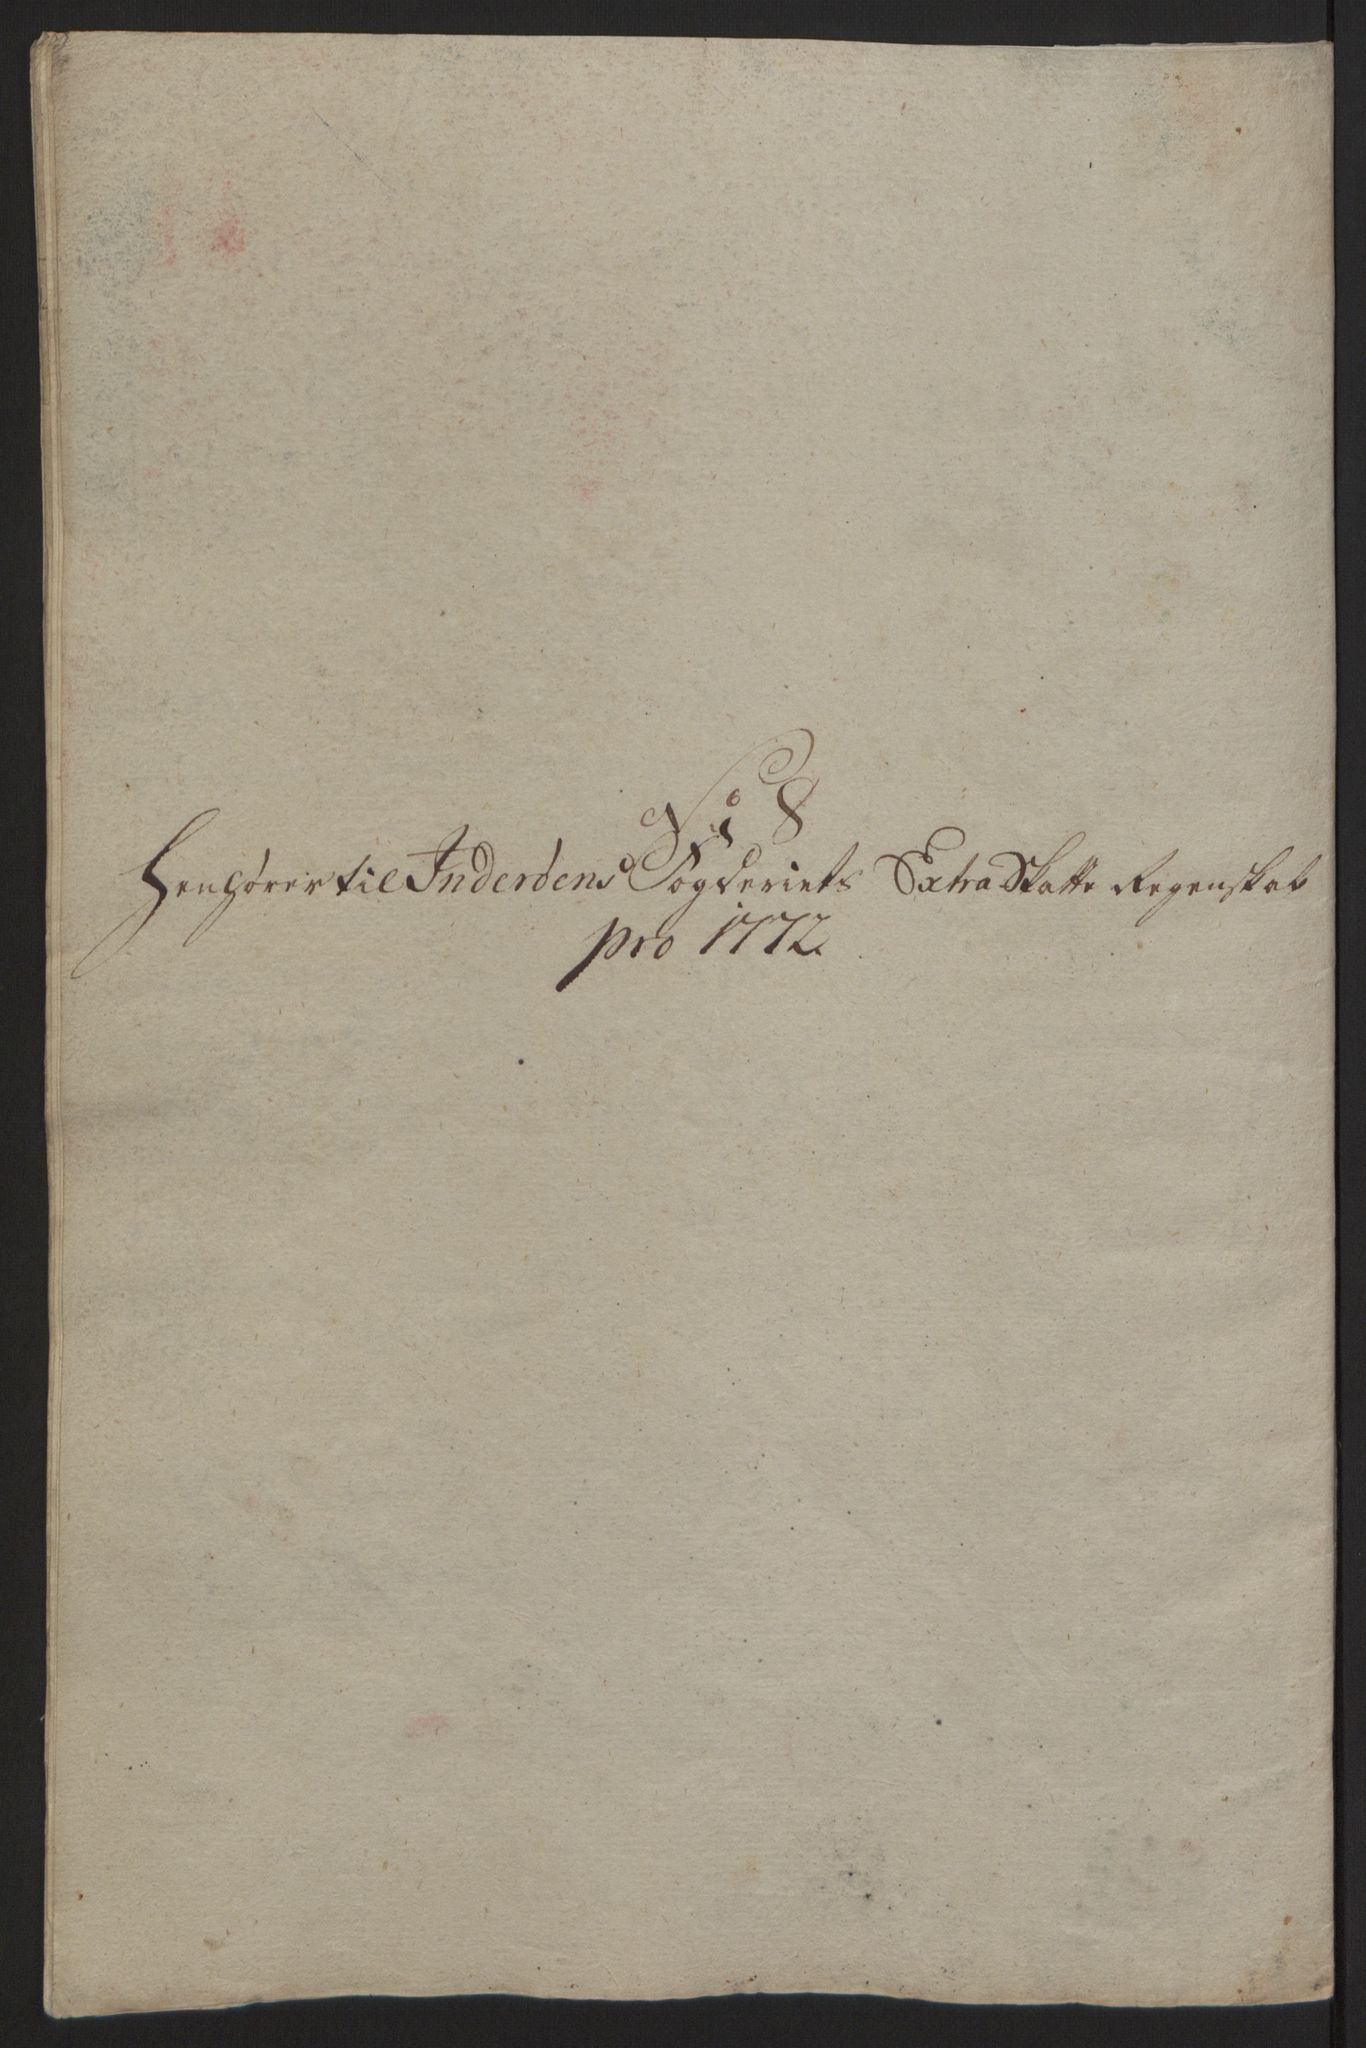 No 8
Henhörer til Inderöens Fogderiets Extra Skatte Regenskab
pro 1772.